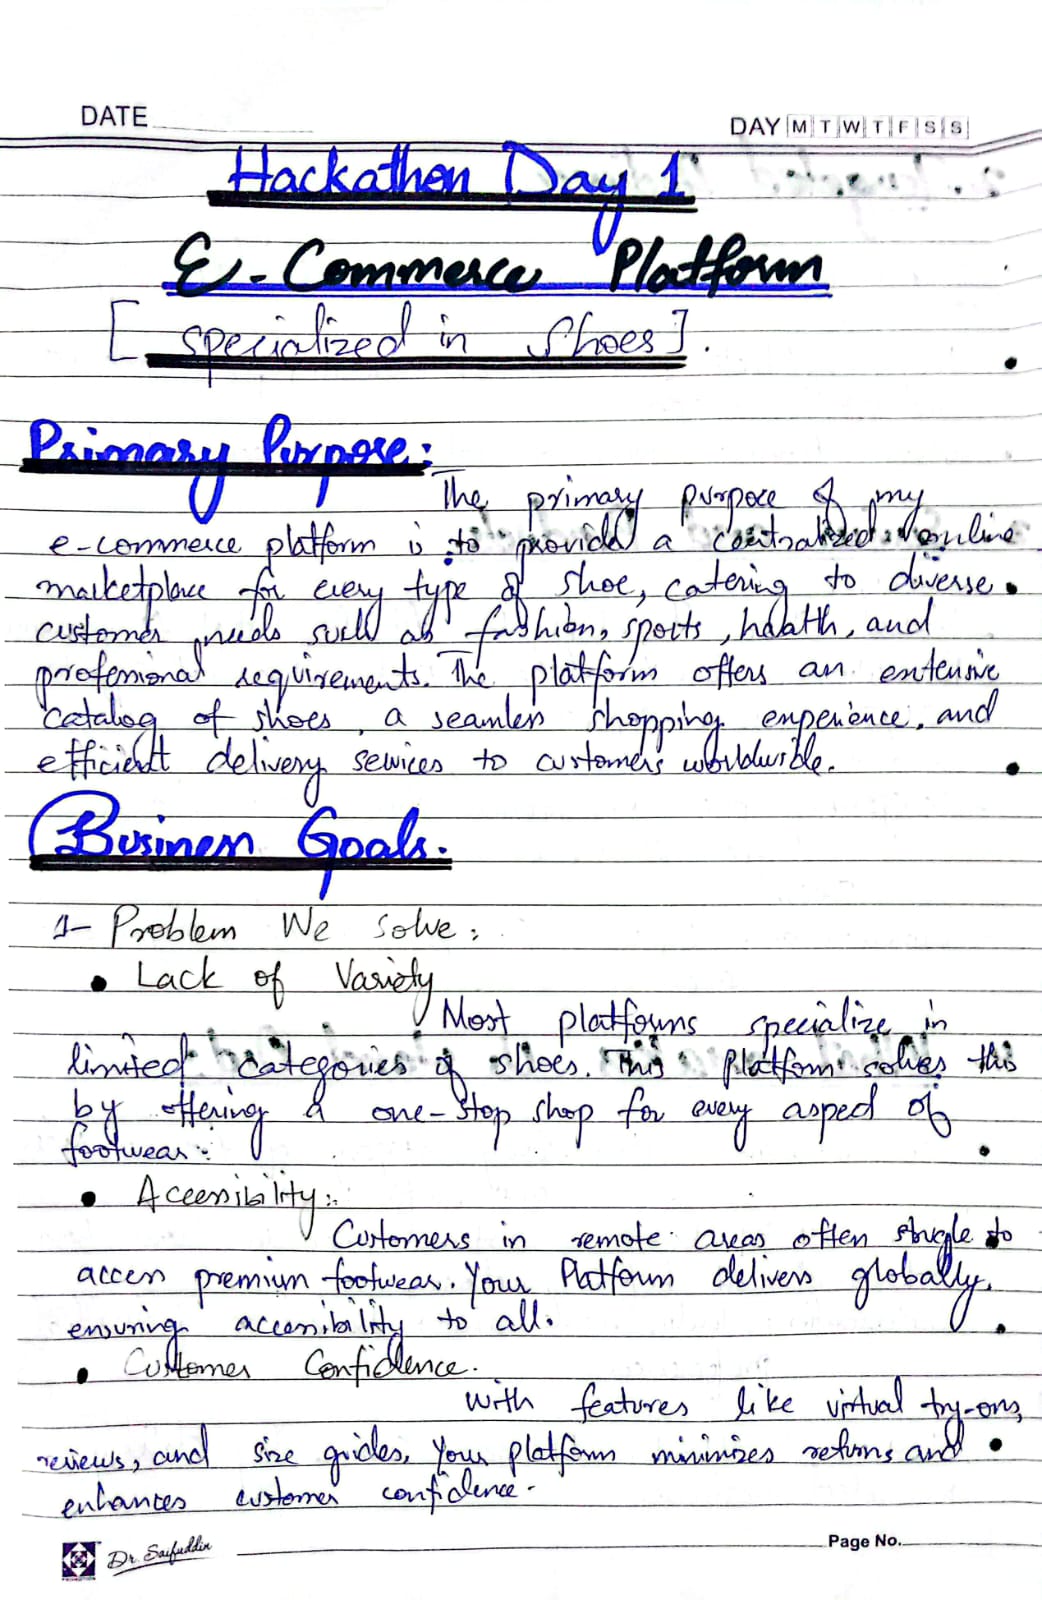 DATE
DAY M T W T F S S
Hackathon Day 1
E-Commerce Platform
[ specialized in Shoes].
Primary Purpose:
The primary purpose of my
e-commerce platform is to provide a centralized online
marketplace for every type of shoe, catering to diverse
customer needs such as fashion, sports, health, and
professional requirements. The platform offers an extensive
catalog of shoes, a seamless shopping experience, and
efficient delivery services to customers worldwide.
Business Goals.
1- Problem We Solve:
• Lack of Variety
Most platforms specialize in
limited categories of shoes. This platform solves this
by offering a one-stop shop for every aspect of
footwear.
• Accessibility:
Customers in remote areas often strugle to
access premium footwear. Your Platform delivers globally,
ensuring accessibility to all.
• Customer Confidence.
With features like virtual try-ons,
reviews, and size guides, Your platform minimizes returns and
enhances customer confidence.
Dr. Saifuddin
Page No.